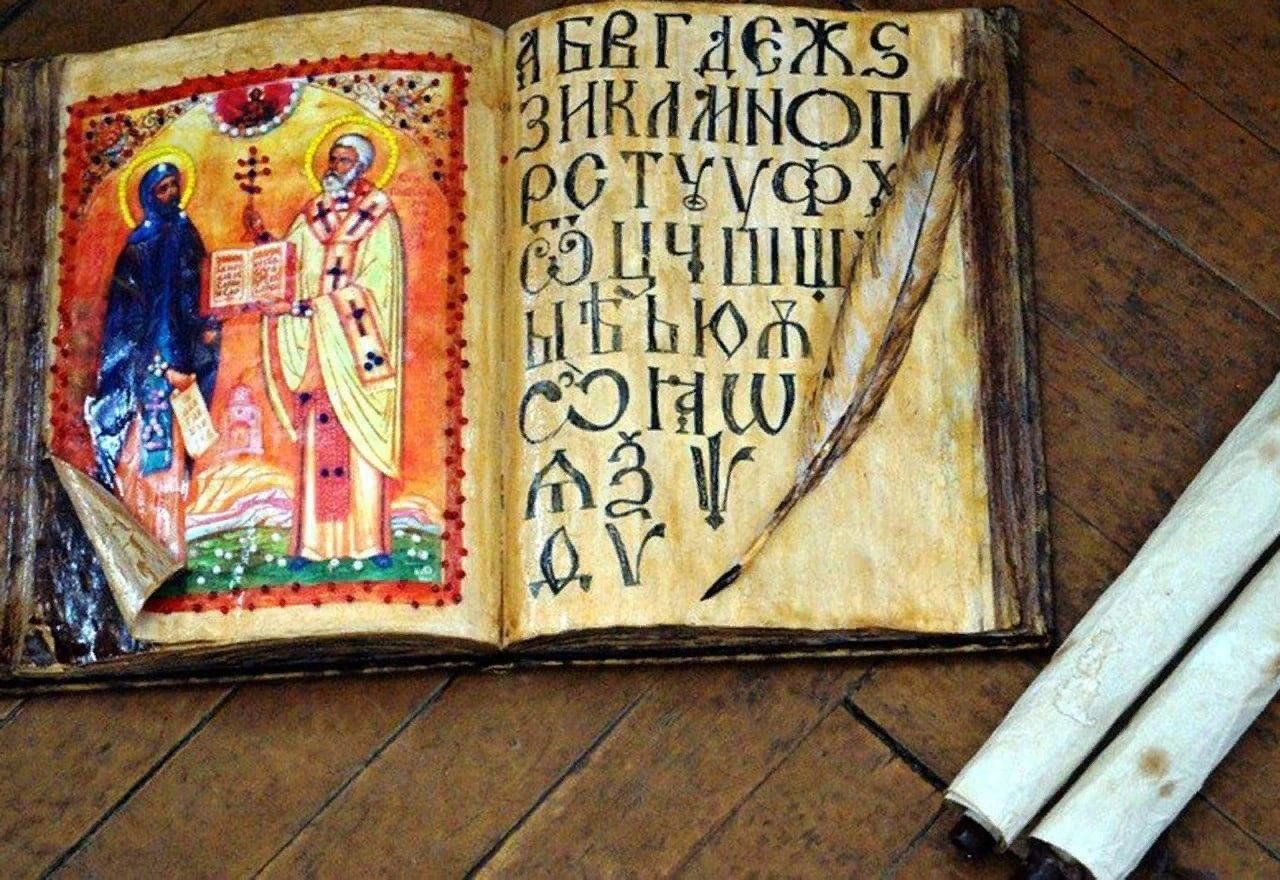 А Б В Г Д Є Ж Ѕ
З И К Л М Н О П
Р С Т Ꙋ Ѵ Ф Х
Ѽ Ц Ч Ш Щ
Ы Ѣ Ь Ю Ѫ
Ѽ Ꙗ Ѡ
Ѧ Ѯ Ѱ
Ѵ